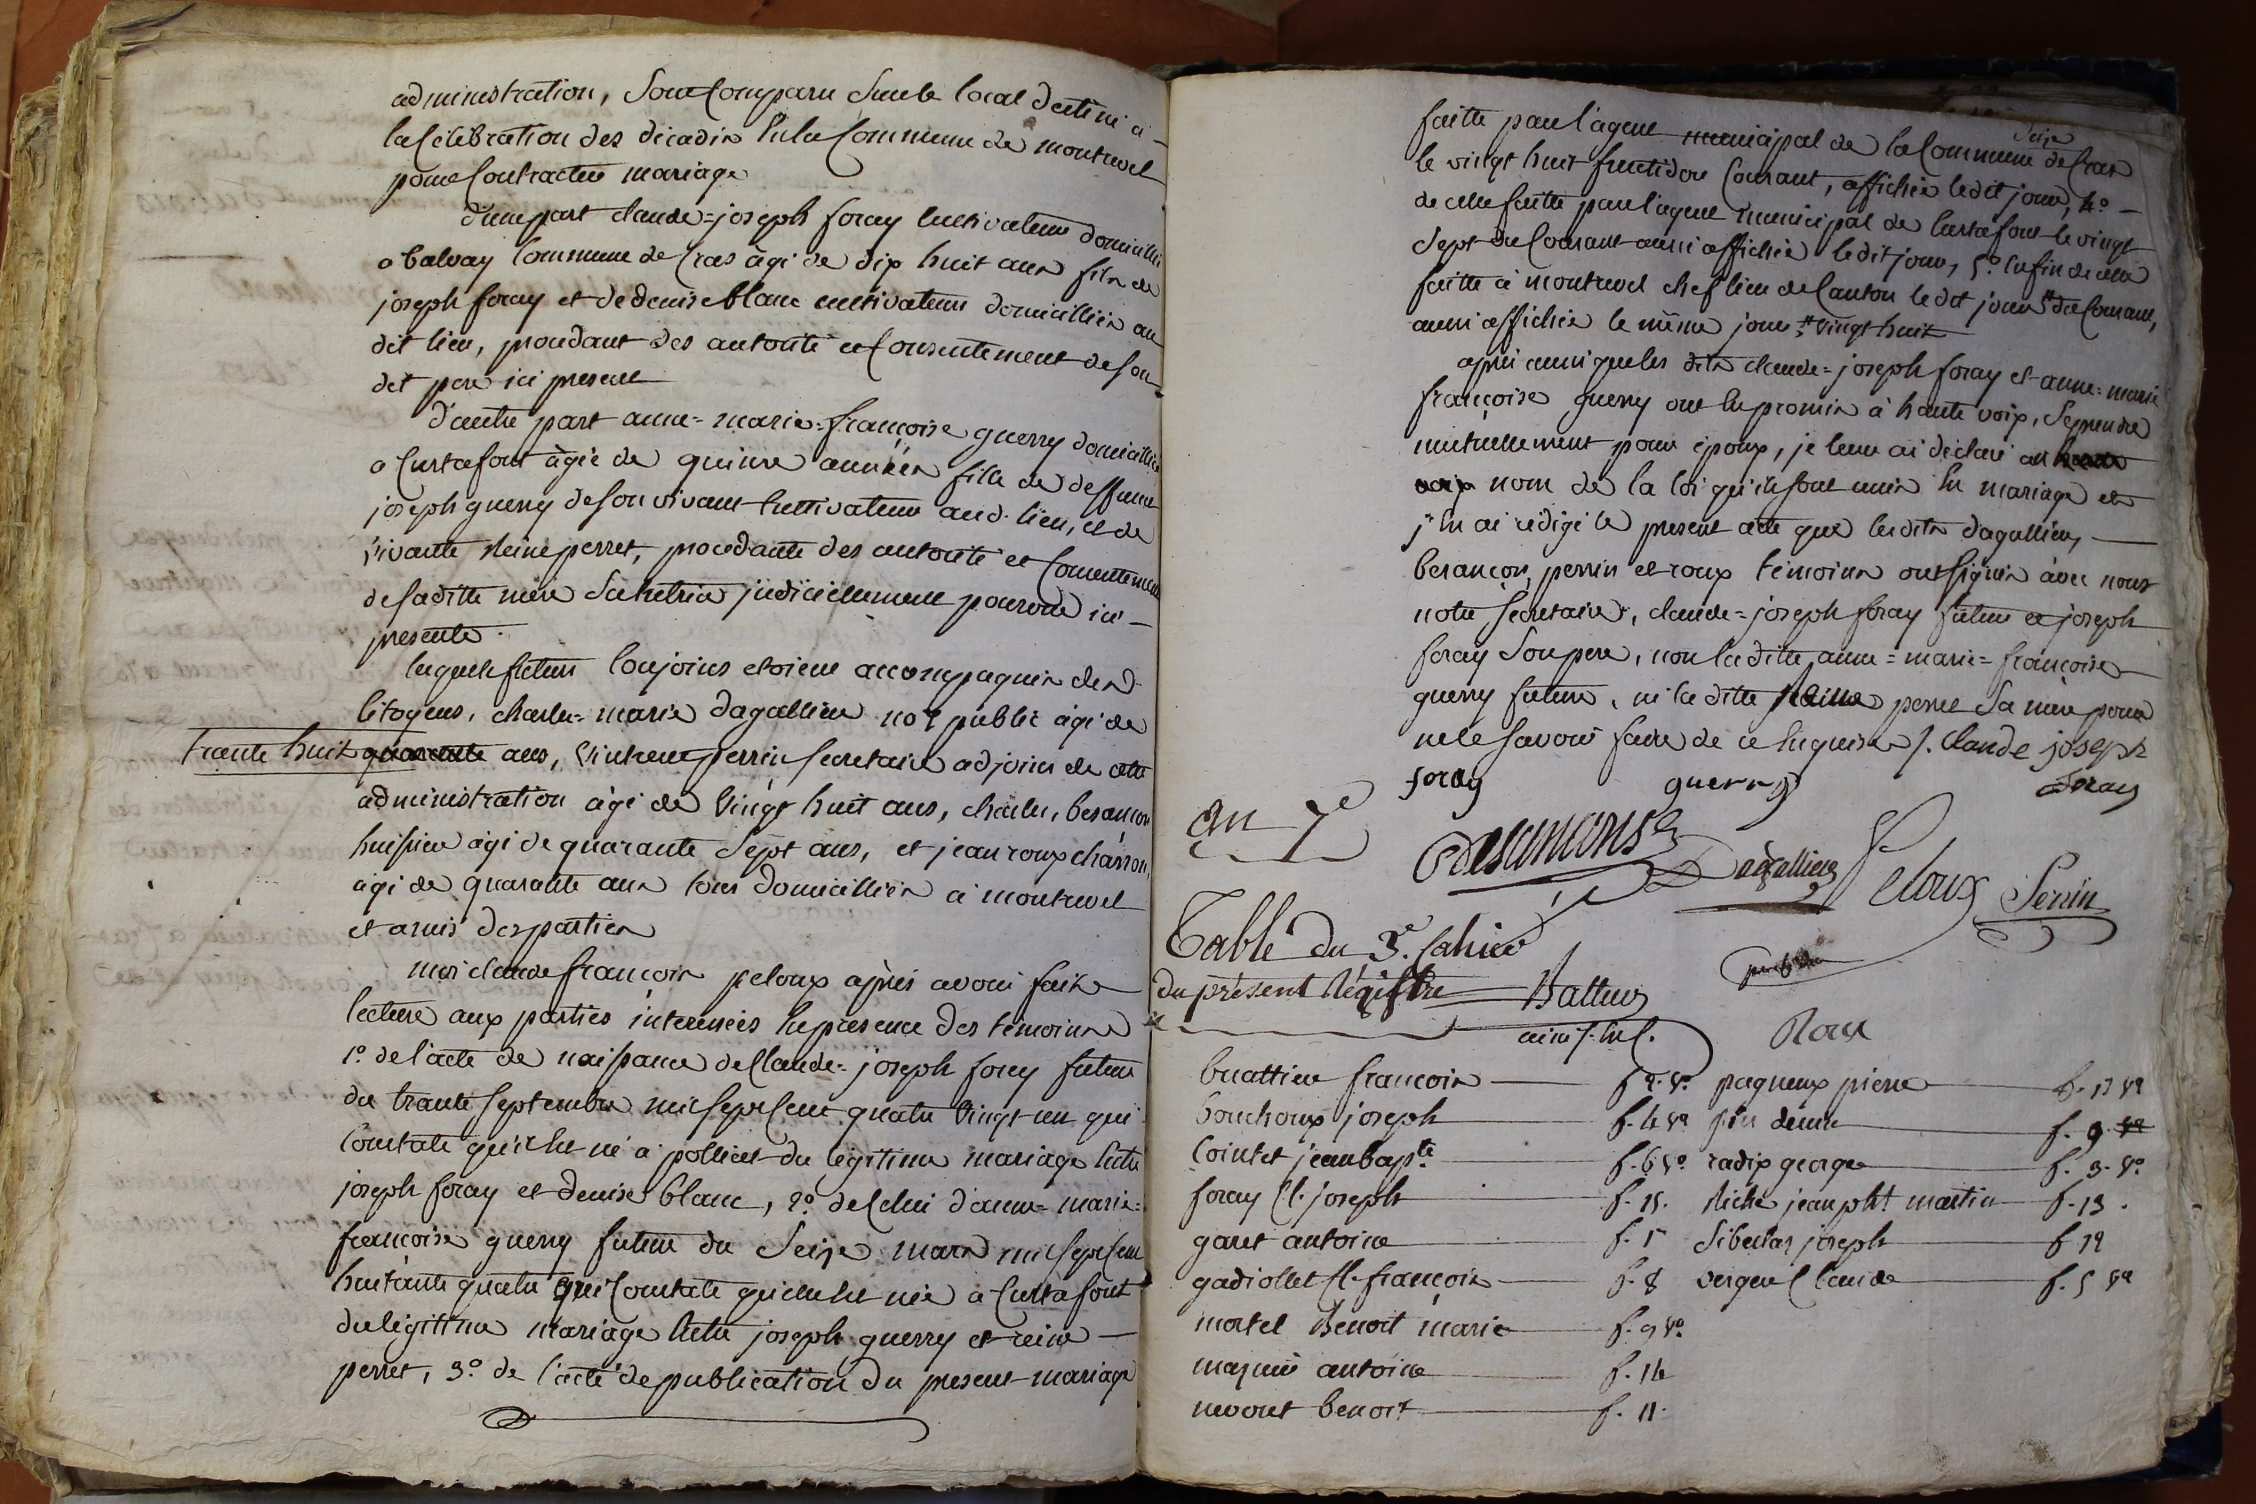 administration, Sont Comparu Sur le local destiné à
la Célébration des décadis En la Commune de montrevel
pour Contracter mariage
d'une part claude=joseph foray Cultivateur domicillié
a balvay Commune de Cras âgé de dix huit ans fils de
joseph foray et de denise blanc cultivateurs domicilliés au
dit lieu, procédant des autorité et Consentement de son
dit pere ici present
d'autre part anne=marie=françoise guerry domicilliée
a Curtafont âgée de quinze années fille de deffunt
joseph guerry de son vivant Cultivateur aud. lieu, et de
vivante Reine perret, procédante des autorité et Consentement
de saditte mère Sa tutrice judiciellement pourvue ici
presente.
lesquels futurs Conjoins etoient accompagnés des
Citoyens, charles=marie dagallier not. public âgé de
trente huit quarante ans, Vincent perrin secretaire adjoint de cette
administration âgé de Vingt huit ans, charles, besançon
huissier âgé de quarante Sept ans, et jean roux charron,
âgé de quarante ans tous domicilliés à montrevel
et amis des parties
moi claude françois peloux après avoir fait
lecture aux parties interessées En presence des témoins
1o. de l'acte de naissance de Claude=joseph foray futur
du trante septembre mil sept Cent quatre Vingt un qui
Constate qu'il Est né à polliat du légitime mariage Entre
joseph foray et denise blanc, 2o. de Celui d'anne=marie=
françoise guerry future du Seize mars mil sept Cent
huitante quatre qui Constate qu'elle Est née à Curtafont
du légitime mariage Entre joseph guerry et reine
perret, 3o. de l'acte de publication du present mariage
faitte par l'agent municipal de la Commune de Cras
Seize
le vingt huit fructidor Courant, affichée ledit jour, 4o.
de celle faitte par l'agent municipal de Curtafont le vingt
Sept du Courant aussi affichée ledit jour, 5o. Enfin de celle
faitte à montrevel chef lieu de Canton le dit jour # du Courant,
aussi affichée le même jour # Vingt huit
après aussi que les dits claude=joseph foray et anne=marie
françoise guerry ont Eu promis à haute voix, Se prendre
mutuellement pour époux, je leur ai déclaré au haute
voix nom de la loi qu'ils sont unis En mariage et
j'En ai rédigé le present acte que lesdits dagallier,
besançon, perrin et roux témoins ont signés avec nous
notre secretaire, claude=joseph foray futur et joseph
foray Son pere, non laditte anne=marie=françoise
guerry future, ni la ditte Reine perret Sa mère pour
ne le savoir faire de ce Enquises /. Claude joseph
foray guerry foray
an 7e
Besançon Dagallier Peloux Perrin
Table du 3e. Cahier
du présent Régistre
Roux
buattier françois f 2. vo. paqueux pierre f. 17 vo
bouchoux joseph f. 4 vo pin denis f. 9. vo
Cointet jean bapte f. 6 vo. radix george f. 3. vo
foray Cl. joseph f. 15. Riche jean pht martin f. 13.
garet antoine f. 1 Sibertas joseph f 12
gadiollet Cl. françois f. 8 verguet Claude f. 5 vo
mortel Benoit marie f. 9 vo.
antoine f. 14
benoit f. 11.